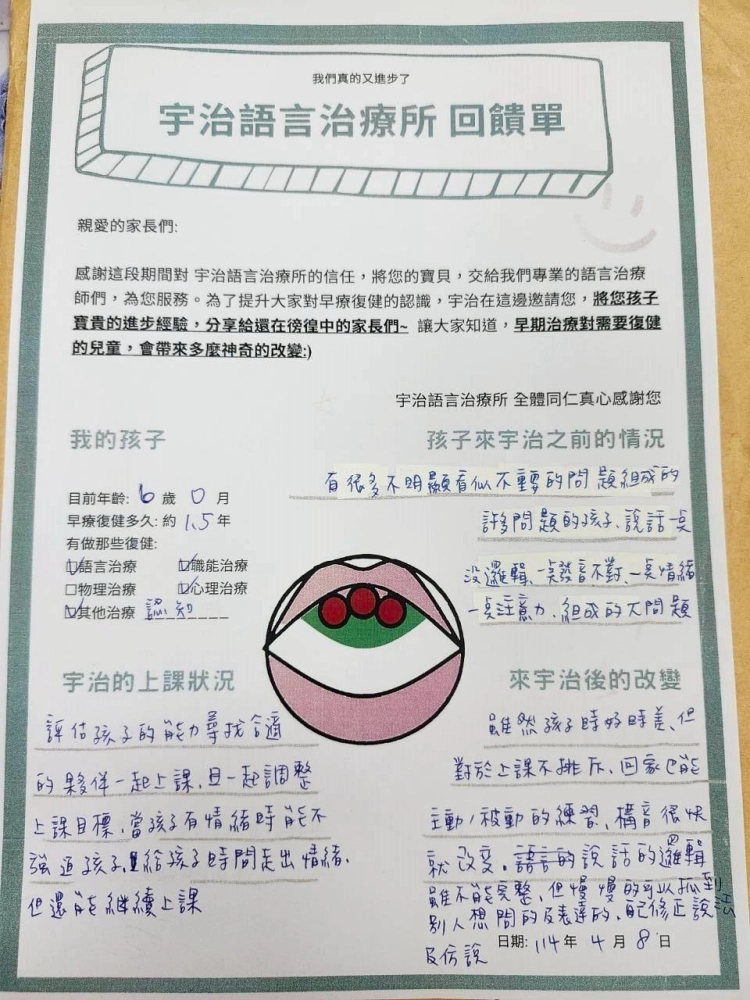 我們真的又進步了
宇治語言治療所 回饋單
親愛的家長們:
感謝這段期間對 宇治語言治療所的信任，將您的寶貝，交給我們專業的語言治療
師們，為您服務。為了提升大家對早療復健的認識，宇治在這邊邀請您，將您孩子
寶貴的進步經驗，分享給還在徬徨中的家長們~ 讓大家知道，早期治療對需要復健
的兒童，會帶來多麼神奇的改變:)
宇治語言治療所 全體同仁真心感謝您
我的孩子
目前年齡: 6 歲 0 月
早療復健多久: 約 1.5 年
有做那些復健:
☑語言治療 ☑職能治療
□物理治療 ☑心理治療
☑其他治療 認知
孩子來宇治之前的情況
有很多不明顯看似不重要的問題組成的
許多問題的孩子、說話一点
沒邏輯、一点發音不對、一点情緒
一点注意力、組成的大問題
宇治的上課狀況
評估孩子的能力尋找合適
的夥伴一起上課、且一起調整
上課目標、當孩子有情緒時能不
強迫孩子、並給孩子時間走出情緒、
但還能繼續上課
來宇治後的改變
雖然孩子時好時差、但
對於上課不排斥、回家也能
主動/被動的練習、構音很快
就改変。語言的說話的邏輯
雖不能完整、但慢慢的可以抓到
別人想問的及表達的、自己修正說法
及仿說
日期: 114 年 4 月 8 日